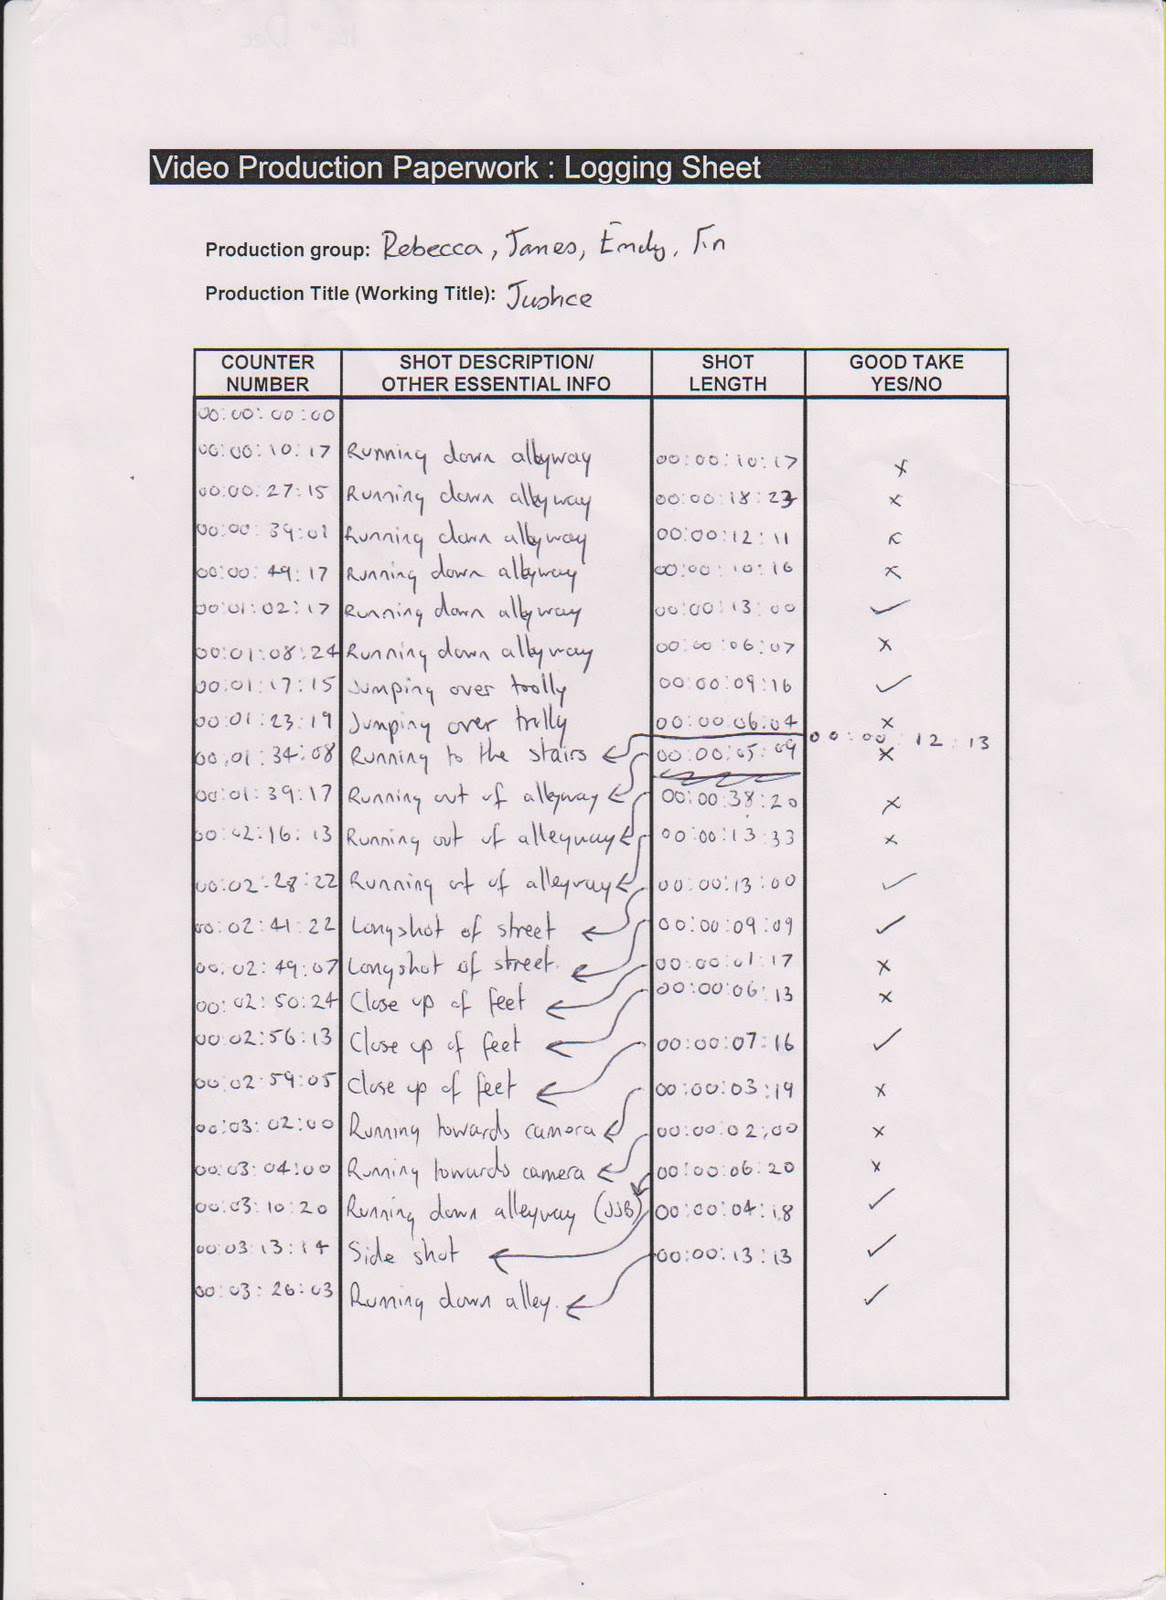 Video Production Paperwork : Logging Sheet
Production group: Rebecca, James, Emily, Tin
Production Title (Working Title): Justice
COUNTER NUMBER SHOT DESCRIPTION/ OTHER ESSENTIAL INFO SHOT LENGTH GOOD TAKE YES/NO
00:00:00:00
00:00:10:17 Running down alleyway 00:00:10:17 x
00:00:27:15 Running down alleyway 00:00:18:23 x
00:00:39:01 Running down alleyway 00:00:12:11 x
00:00:49:17 Running down alleyway 00:00:10:16 x
00:01:02:17 Running down alleyway 00:00:13:00 ✓
00:01:08:24 Running down alleyway 00:00:06:07 x
00:01:17:15 Jumping over trolly 00:00:09:16 ✓
00:01:23:19 Jumping over trolly 00:00:06:04 x
00:00:12:13
00:01:34:08 Running to the stairs 00:00:05:09 x
00:01:39:17 Running out of alleyway 00:00:38:20 x
00:02:16:13 Running out of alleyway 00:00:13:33 x
00:02:28:22 Running out of alleyway 00:00:13:00 ✓
00:02:41:22 Longshot of street 00:00:09:09 ✓
00:02:49:07 Longshot of street. 00:00:01:17 x
00:02:50:24 Close up of feet 00:00:06:13 x
00:02:56:13 Close up of feet 00:00:07:16 ✓
00:02:59:05 Close up of feet 00:00:03:19 x
00:03:02:00 Running towards camera 00:00:02:00 x
00:03:04:00 Running towards camera 00:00:06:20 x
00:03:10:20 Running down alleyway (JJB) 00:00:04:18 ✓
00:03:13:14 Side shot 00:00:13:13 ✓
00:03:26:03 Running down alley. ✓